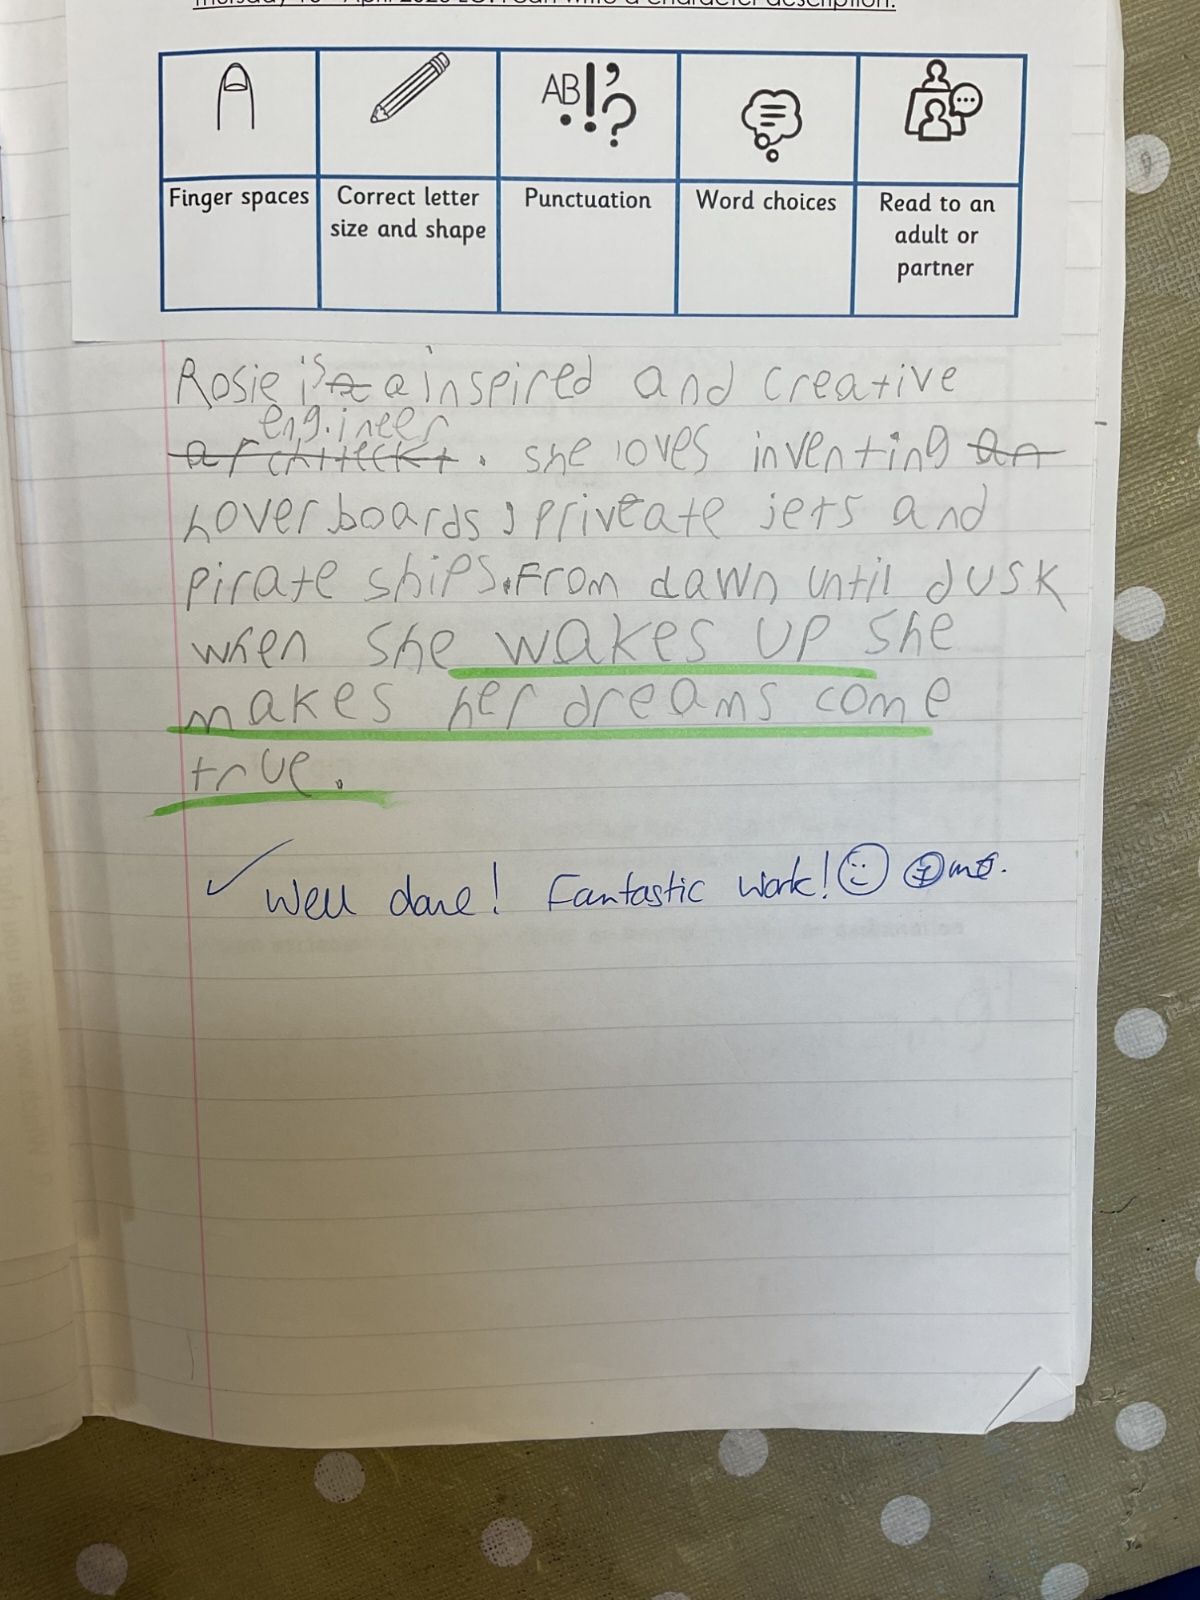 Finger spaces
Correct letter
size and shape
Punctuation
Word choices
Read to an
adult or
partner
AB!,?
Rosie is a a inspired and creative
engineer
architeckt. she loves inventing an
hoverboards, priveate jets and
pirate ships. From dawn until dusk
when she wakes up she
makes her dreams come
true.
✓ Well done! Fantastic work!